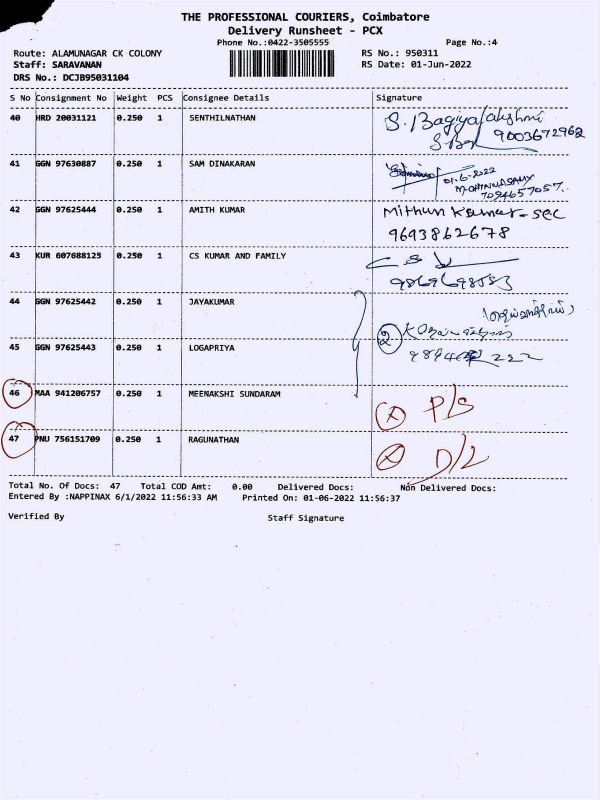 THE PROFESSIONAL COURIERS, Coimbatore
Delivery Runsheet - PCX
Phone No.:0422-3505555
Page No.:4
Route: ALAMUNAGAR CK COLONY
RS No.: 950311
Staff: SARAVANAN
RS Date: 01-Jun-2022
DRS No.: DCJB95031104
S No Consignment No Weight PCS Consignee Details Signature
40 HRD 20031121 0.250 1 SENTHILNATHAN S. Bagiyalakshmi
9003672962
41 GGN 97630887 0.250 1 SAM DINAKARAN 01.6.2022
M.CHINNASAMY
7094657057.
42 GGN 97625444 0.250 1 AMITH KUMAR Mithun Kumar - sec
9693862678
43 KUR 607688125 0.250 1 CS KUMAR AND FAMILY
9869698583
44 GGN 97625442 0.250 1 JAYAKUMAR
2
45 GGN 97625443 0.250 1 LOGAPRIYA
46 MAA 941206757 0.250 1 MEENAKSHI SUNDARAM X P/S
47 PNU 756151709 0.250 1 RAGUNATHAN X D/L
Total No. Of Docs: 47 Total COD Amt: 0.00 Delivered Docs: Non Delivered Docs:
Entered By :NAPPINAX 6/1/2022 11:56:33 AM Printed On: 01-06-2022 11:56:37
Verified By Staff Signature